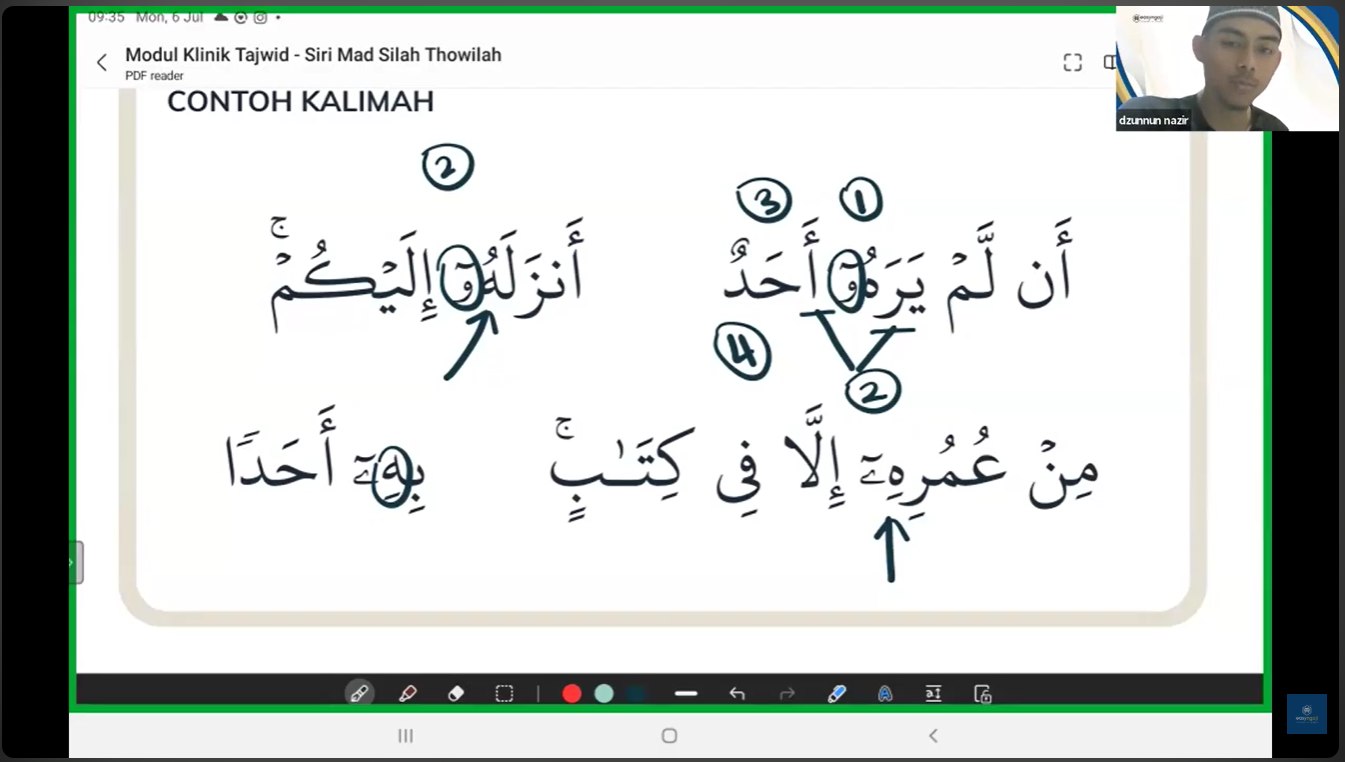 09:35 Mon, 6 Jul
Modul Klinik Tajwid - Siri Mad Silah Thowilah
PDF reader
dzunnun nazir
CONTOH KALIMAH
② ③ ①
أَن لَّمْ يَرَهُۥٓ أَحَدٌ أَنزَلَهُۥٓ إِلَيْكُمْ ۚ
④ ②
مِنْ عُمُرِهِۦٓ إِلَّا فِى كِتَـٰبٍ ۚ بِهِۦٓ أَحَدًا